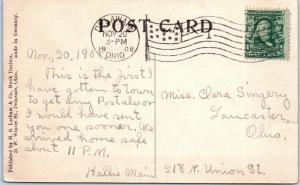 POST CARD
DELAWARE
NOV 20
3-PM
1908
OHIO
Nov, 20, 1908
This is the first I
have gotten to town
to get any Postals or
I would have sent
you one sooner. We
arrived home safe
about 11 P.M.
Hallie Main
Miss. Clara Singery
Lancaster,
Ohio.
218 N. Union St.
Published by H. S. Latham & Co. Book Dealers,
21 W. Winter St., Delaware, Ohio.
made in Germany.